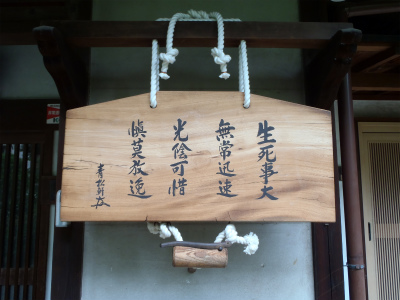 生死事大
無常迅速
光陰可惜
慎莫放逸